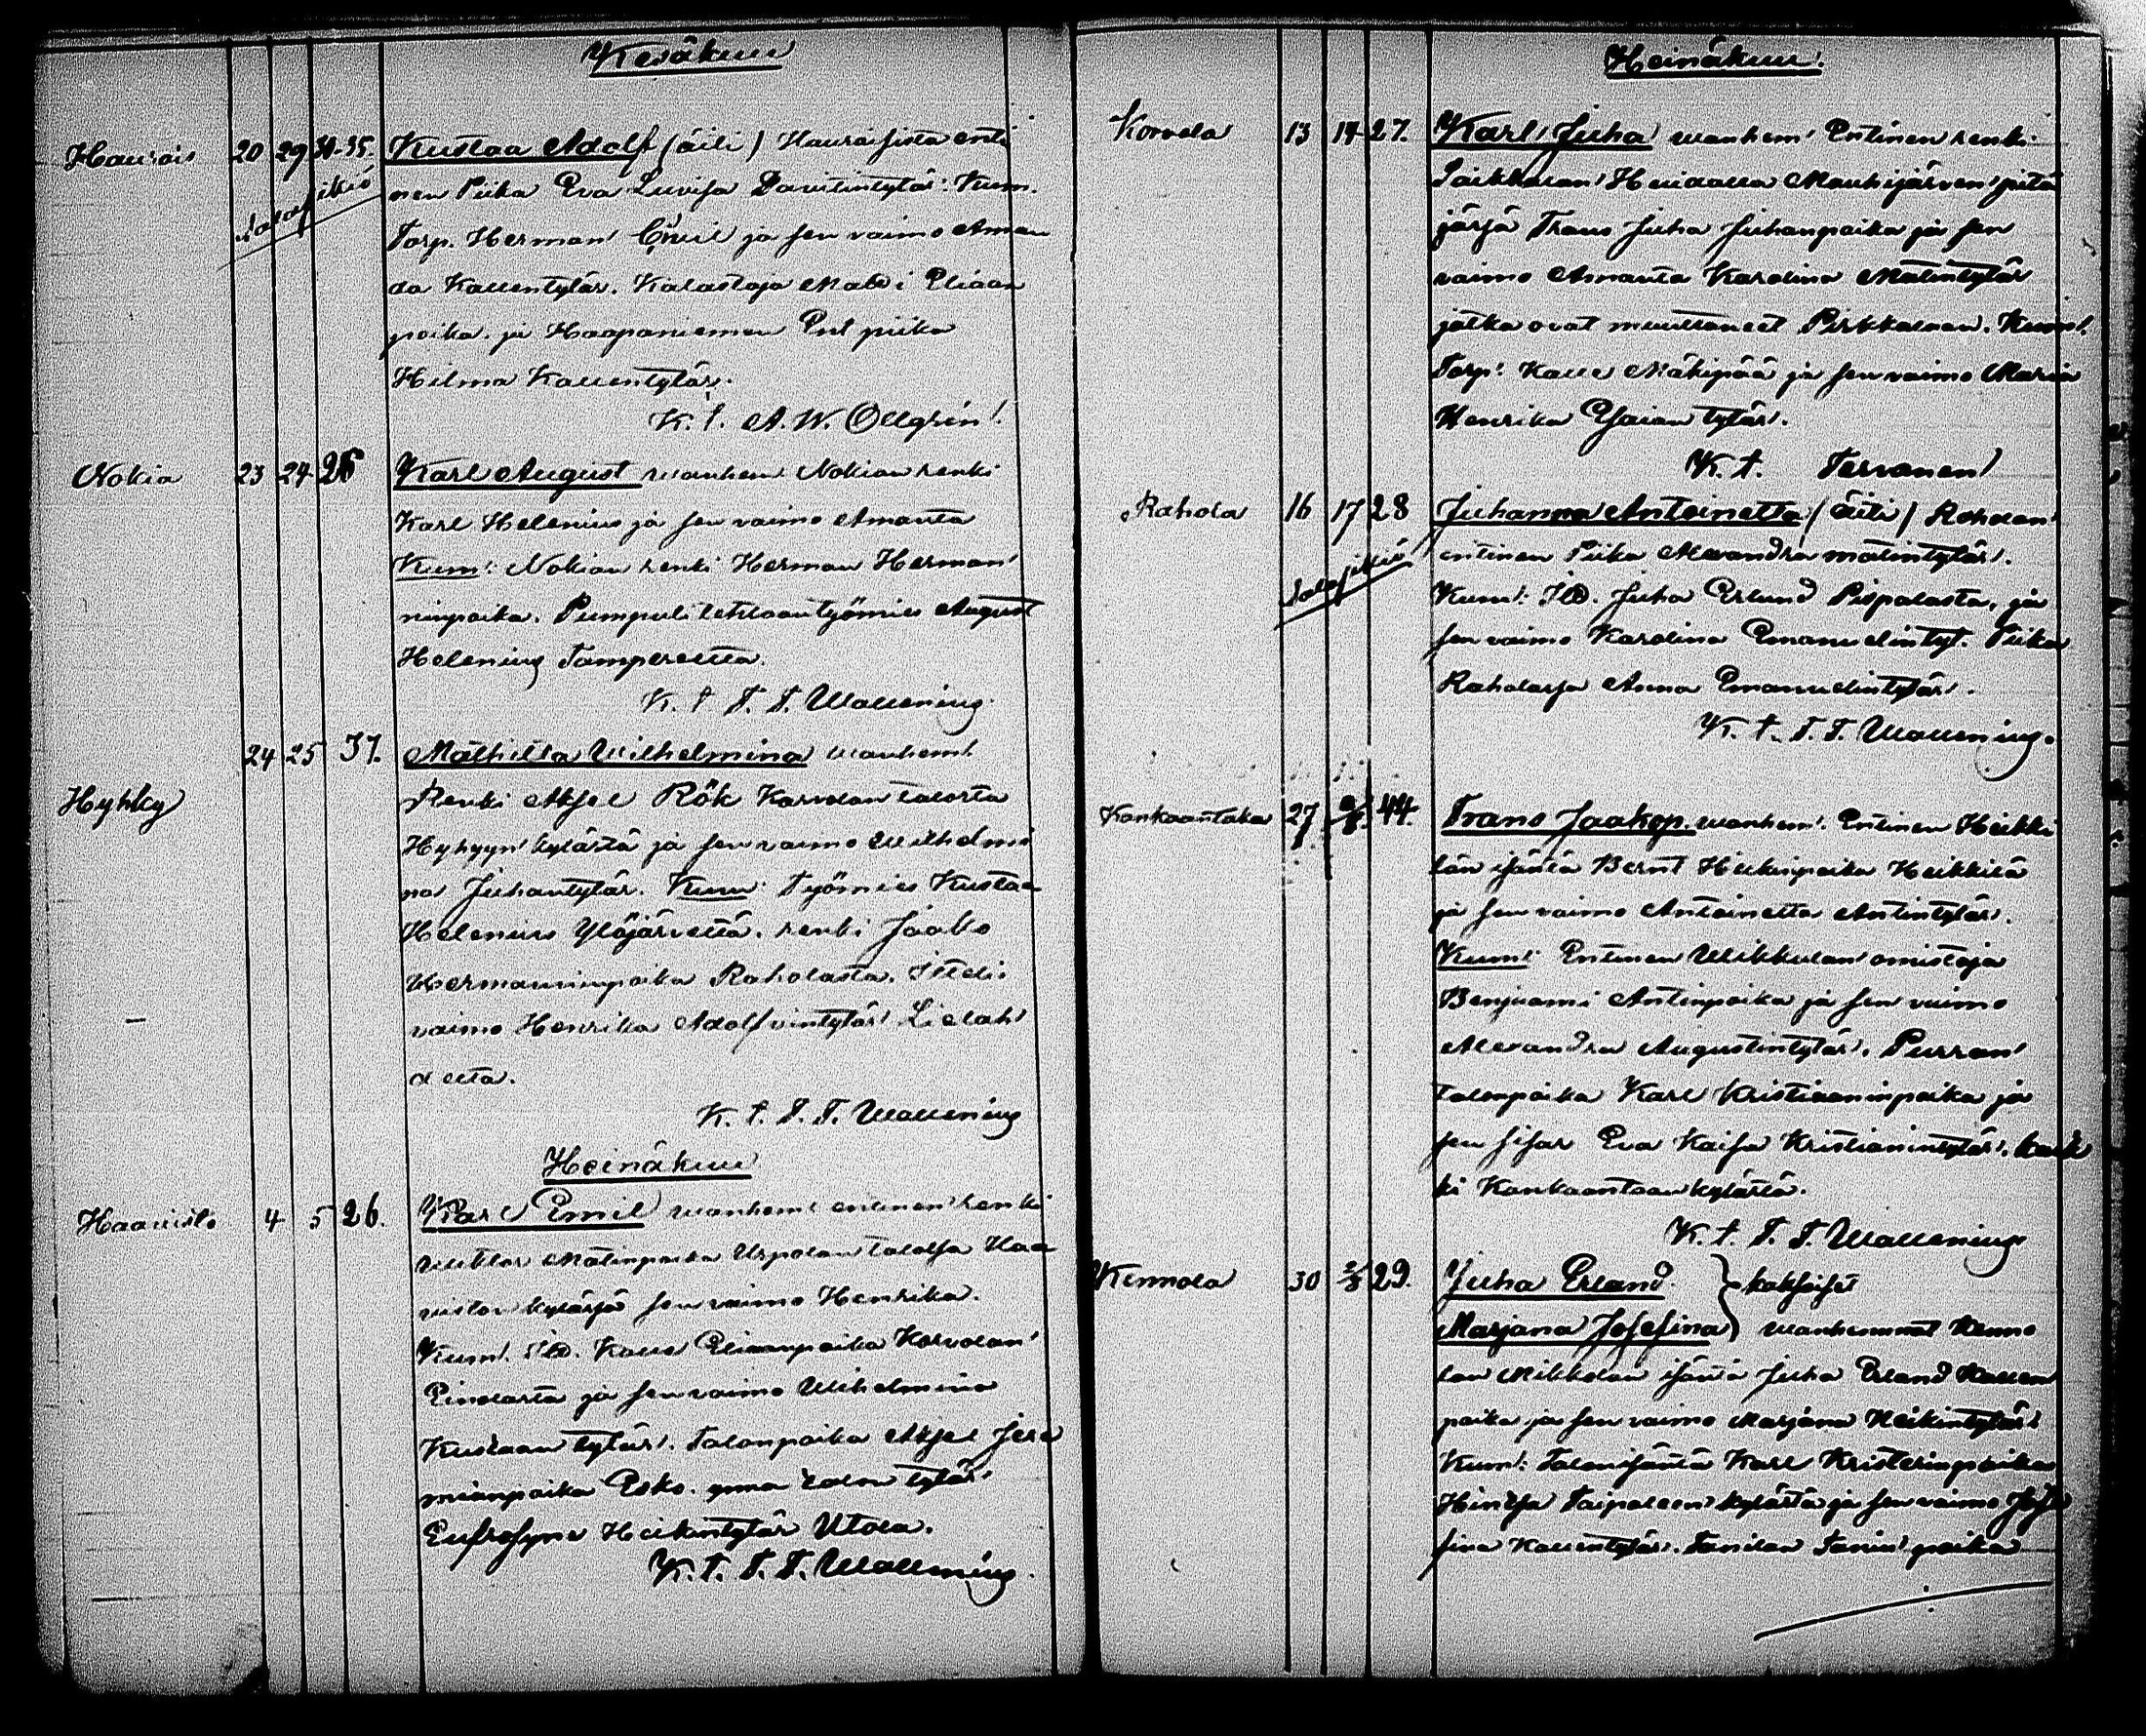 Kesäkuu
Haurais 20 29 34-35. Kustaa Adolf (äiti) Hauraisista enti
nen Piika Eva Luvisa Davitintytär. Kum.
Torp. Herman ja sen vaimo Aman
da Kallentytär. Kalastaja Matti Eliaan
poika ja Haapaniemen Piika
Hilma Kallentytär.
K. t. A. W. Ollgrén.
Nokia 23 24 26 Karl August wanhem. Nokian renki
Karl Helenius ja sen vaimo Amanta
Kum: Nokian renki Herman Herman
ninpoika. Pumpulitehtaan työmies August
Helenius Tampereelta.
K. t. F. F. Wallenius.
Hyhky 24 25 37. Mathilta Wilhelmina wanhem.
Renki Aksel Rök Karvolan talosta
Hyhyyn kylästä ja sen vaimo Wilhelmi
na Juhantytär. Kum: Työmies Kustaa
Helenius Ylöjärveltä. renki Jaakko
Hermanninpoika Raholasta. Itteli.
vaimo Henrika Adolfvintytär Lielah
delta.
K. t. F. F. Wallenius
Heinäkuu
Haavisto 4 5 26. Karl Emil wanhem. entinen renki
Wihtor Matinpoika Urpolan talossa Haa
viston kylässä sen vaimo Henrika.
Kum. Itd. Kalle Eliaanpoika Korvolan
Einolasta ja sen vaimo Wilhelmiina
Kustaantytär. Talonpoika Aksel Jere
mianpoika Esko. ynnä talon tytär
Eufrosyne Heikintytär Utola.
K. t. F. F. Wallenius.
Heinäkuu.
Korvola 13 14 27. Karl Juha wanhem. Entinen renki
Mouhijärven pitä
jässä Frans Juha Juhanpoika ja sen
vaimo Amanta Karolina Matintytär
jotka ovat muuttaneet Pirkkalaan. Kum.
Torp. Kalle Mäkipää ja sen vaimo Maria
Henrika Esaiantytär.
K. t. Tervonen
Rahola 16 17 28 Juhanna Antoinetta (äiti) Raholan
entinen Piika Alexandra Matintytär.
Kum: Itd. Juha Erlund Pispalasta, ja
sen vaimo Karolina Emanuelintyt. Piika
Raholassa Anna Emanuelintytär.
K. t. F. F. Wallenius.
Kankaantaka 27 2/8 44. Frans Jaakop. wanhem. Entinen Heikki
län isäntä Bernt Heikinpoika Heikkilä
ja sen vaimo Antoinetta Antintytär.
Kum: Entinen Mikkolan omistaja
Benjaami Antinpoika ja sen vaimo
Alexandra Augustintytär. Purran
talonpoika Karl Kristiaaninpoika ja
sen sisar Eva Kaisa Kristianintytär. kaik
ki Kankaantaan kylästä.
K. t. F. F. Wallenius
Kennola 30 2/8 29. Juha Erland } kaksoiset
Marjana Josefina } wanhemmat Kenno
lan Mikkolan isäntä Juha Erland Kallen
poika ja sen vaimo Marjana Heikintytär
Kum: Talonisäntä Karl Kristerinpoika
Hintsa Taipaleen kylästä ja sen vaimo Jose
fina Kallentytär. Tanilan poika